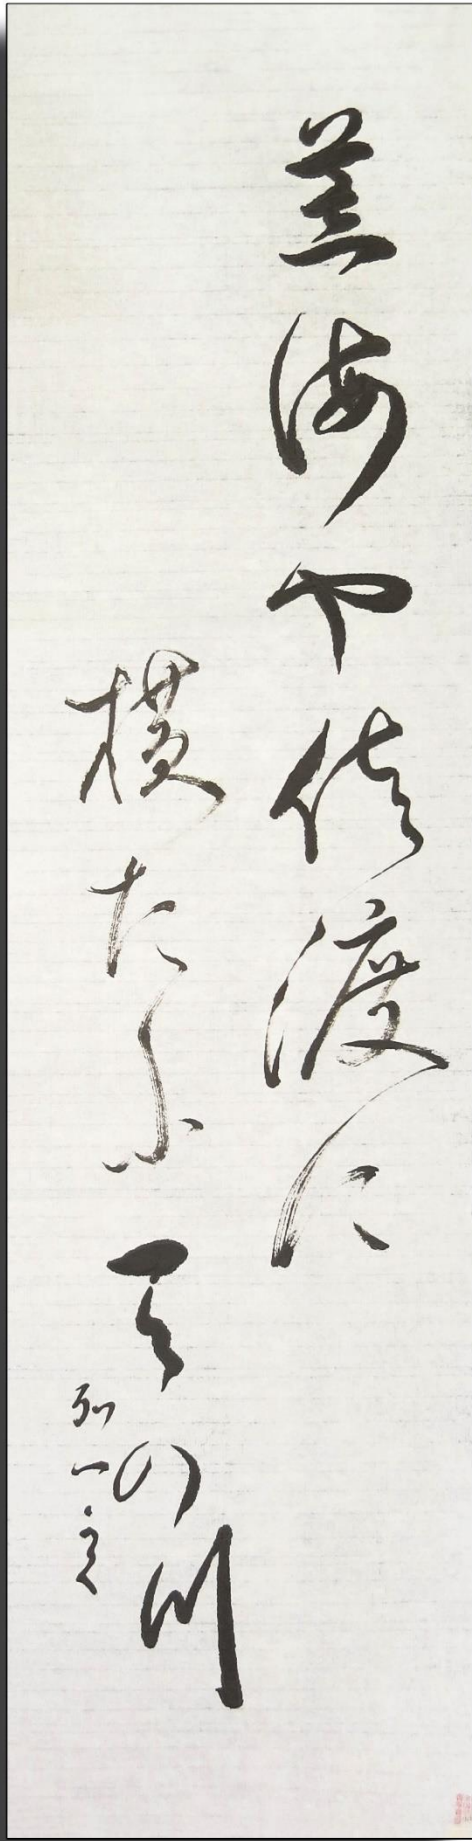 荒海や佐渡に
横たふ天の川